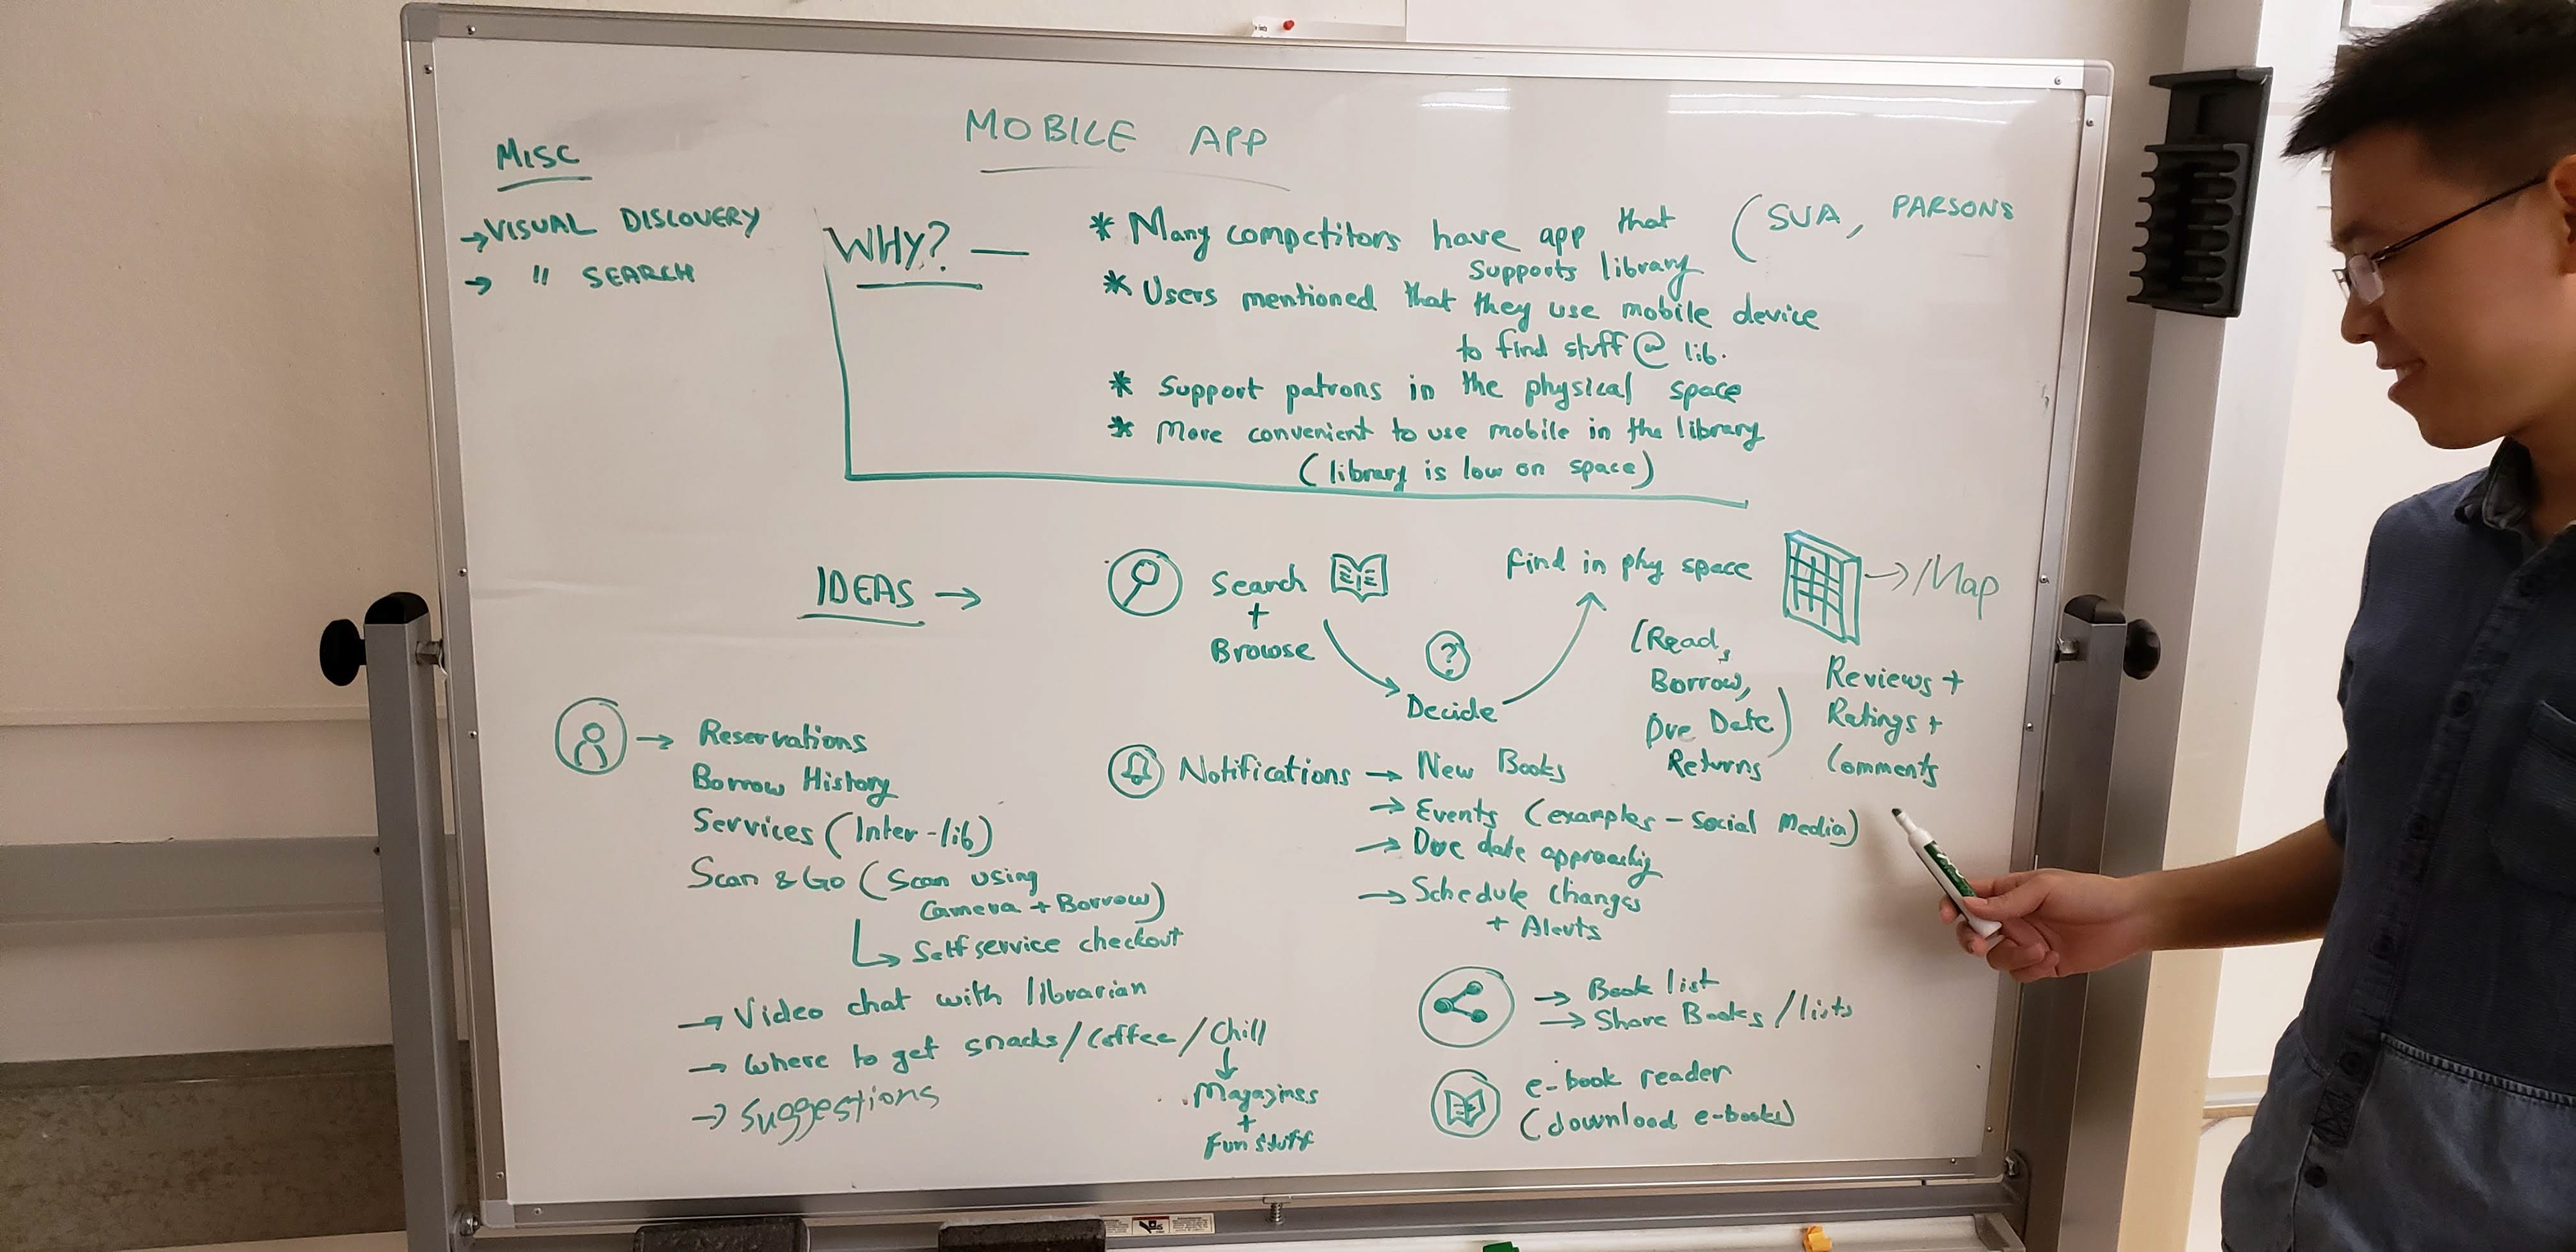 MOBILE APP
MISC
→ VISUAL DISCOVERY
→ " SEARCH
WHY? —
* Many competitors have app that (SVA, PARSONS
supports library
* Users mentioned that they use mobile device
to find stuff @ lib.
* Support patrons in the physical space
* More convenient to use mobile in the library
(library is low on space)
IDEAS →
Search
+
Browse
? 
Decide
find in phy space
→ Map
(Read,
Borrow,
Due Date)
Returns
Reviews +
Ratings +
Comments
→ Reservations
Borrow History
Services (Inter-lib)
Scan & Go (Scan using
Camera + Borrow)
↳ Self service checkout
→ Video chat with librarian
→ Where to get snacks/Coffee/Chill
↓
Magazines
+
Fun stuff
→ Suggestions
Notifications → New Books
→ Events (examples - Social Media)
→ Due date approachig
→ Schedule changes
+ Alerts
→ Book list
→ Share Books/lists
e-book reader
(download e-books)